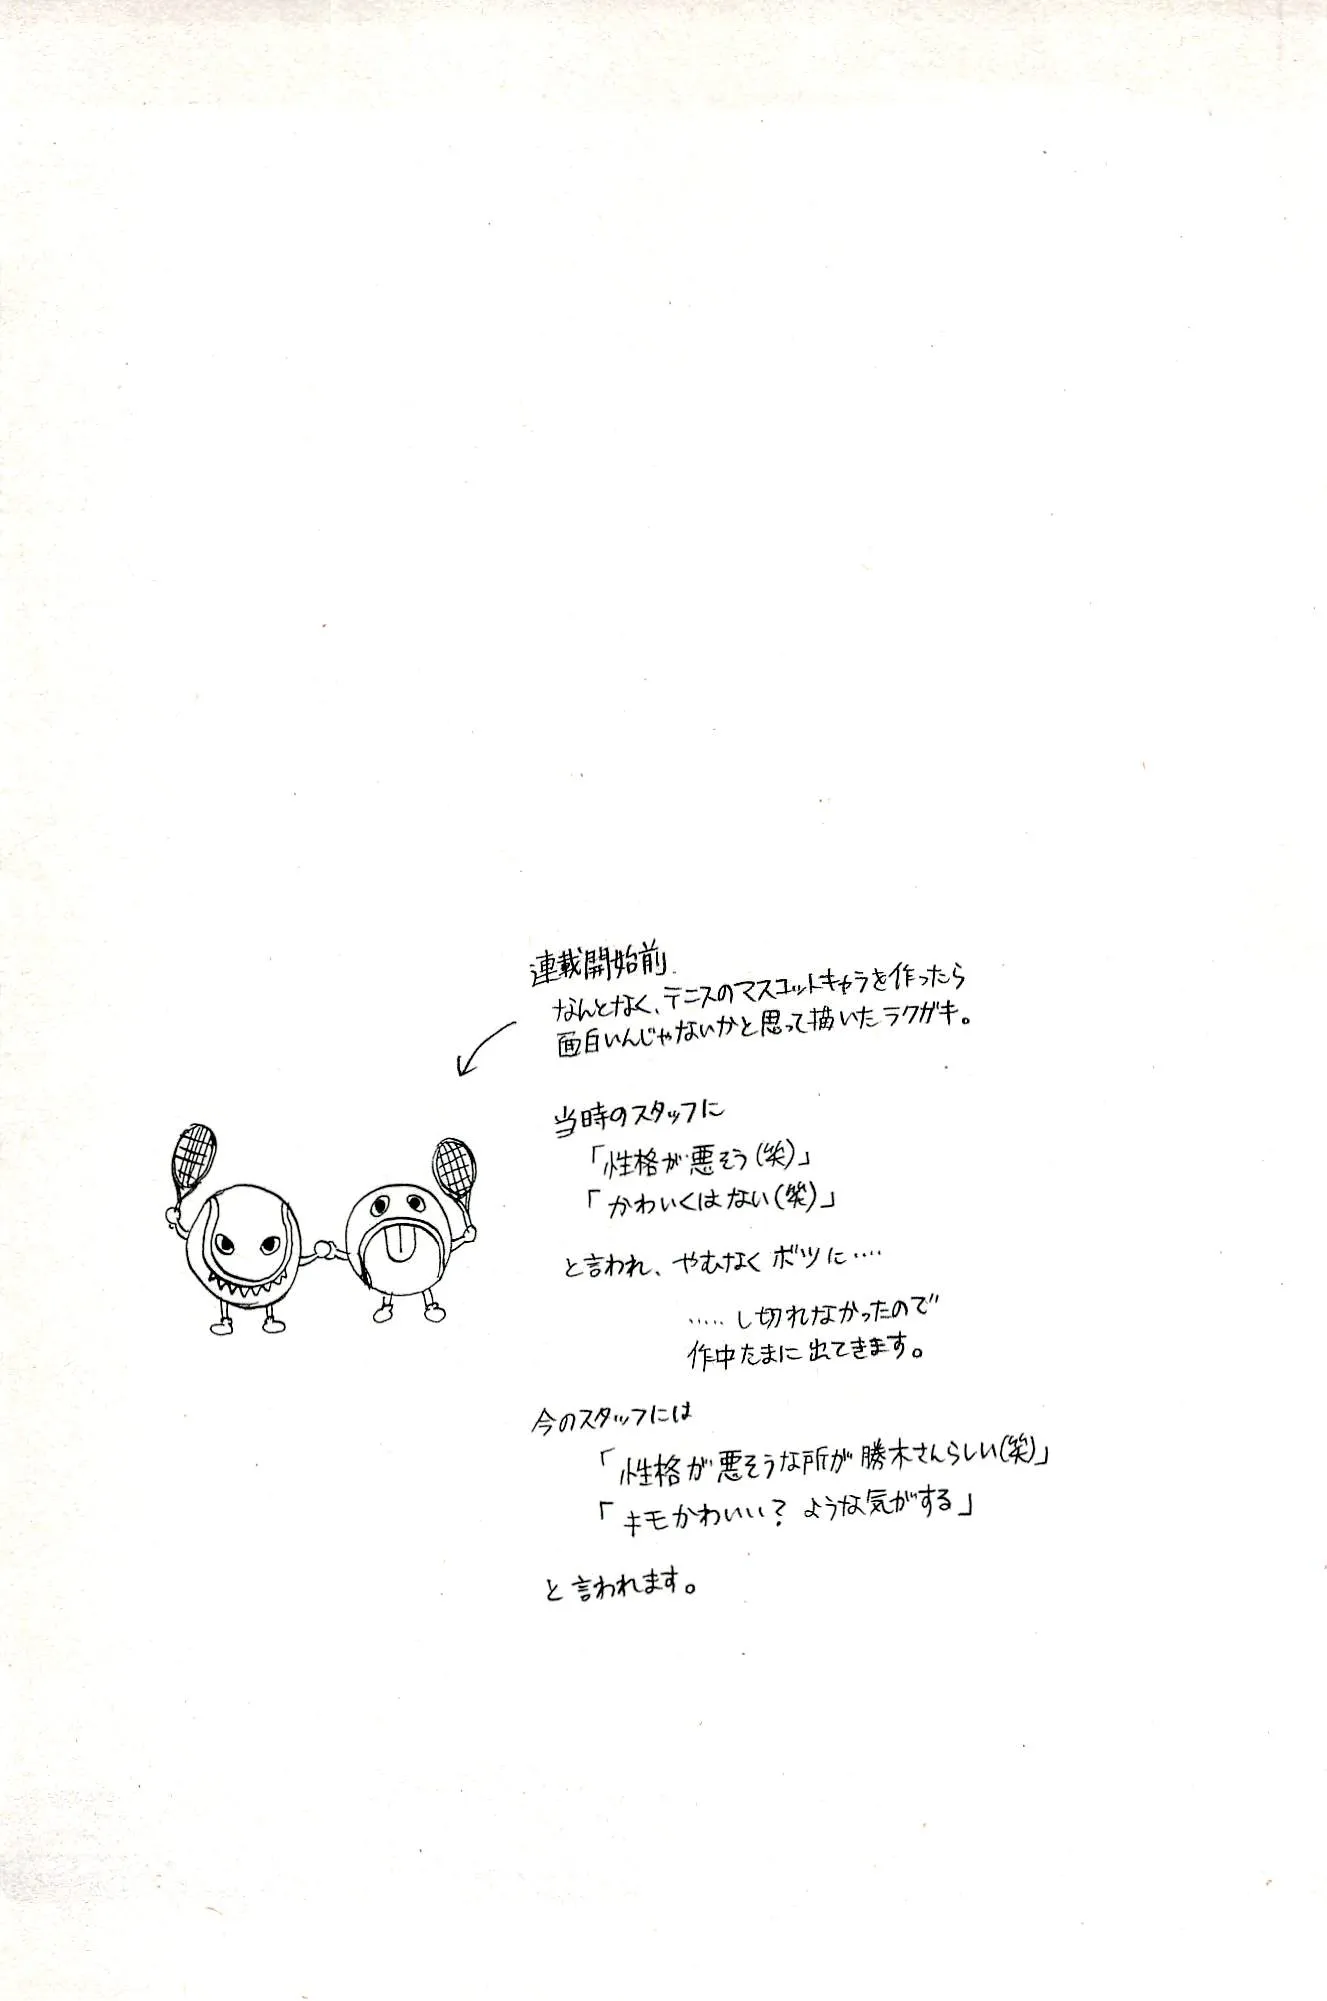 連載開始前
なんとなく、テニスのマスコットキャラを作ったら
面白いんじゃないかと思って描いたラクガキ。
当時のスタッフに
「性格が悪そう(笑)」
「かわいくはない(笑)」
と言われ、やむなくボツに‥‥
‥‥‥し切れなかったので
作中たまに出てきます。
今のスタッフには
「性格が悪そうな所が勝木さんらしい(笑)」
「キモかわいい?ような気がする」
と言われます。